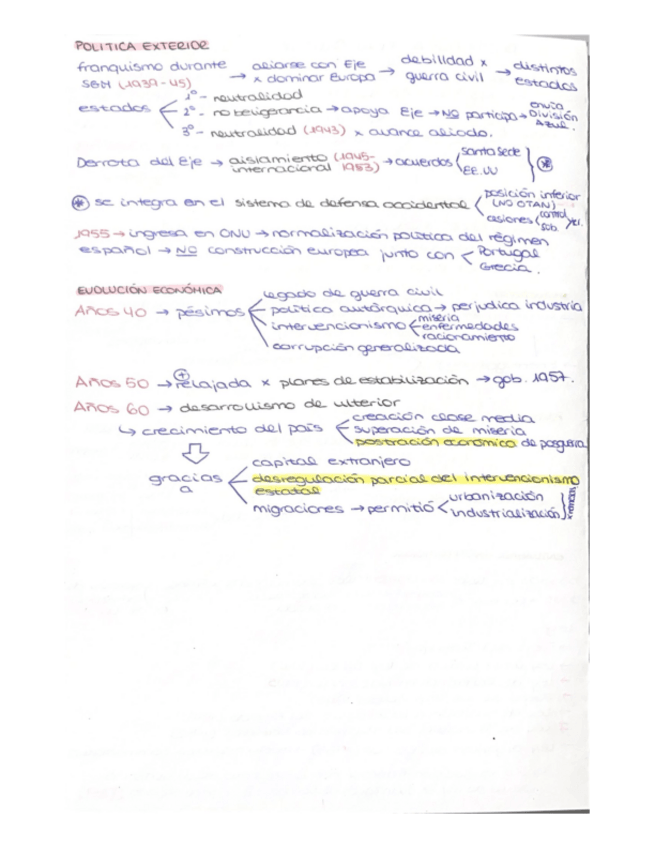 POLITICA EXTERIOR
franquismo durante SGM (1939-45) → aliarse con Eje x dominar Europa → debilidad x guerra civil → distintos estados
estados
1º- neutralidad
2º- no beligerancia → apoya Eje → NO participa → envía División Azul.
3º- neutralidad (1943) x avance aliado.
Derrota del Eje → aislamiento internacional (1945-1953) → acuerdos Santa Sede EE.UU *
* se integra en el sistema de defensa occidental
posición inferior (NO OTAN)
cesiones
1955 → ingresa en ONU → normalización política del régimen
español → NO construcción europea junto con Portugal
Grecia.
EVOLUCIÓN ECONÓMICA
legado de guerra civil
Años 40 → pésimos política autárquica → perjudica industria
intervencionismo miseria enfermedades racionamiento
corrupción generalizada
Años 50 → + relajada x planes de estabilización → gob. 1957.
Años 60 → desarrollismo de ulterior
↳ crecimiento del país
creación clase media
superación de miseria
postración económica de posguerra
capital extranjero
gracias a
desregulación parcial del intervencionismo
estatal
migraciones → permitió urbanización industrialización